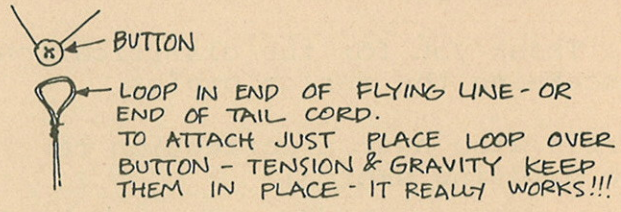 BUTTON
LOOP IN END OF FLYING LINE - OR
END OF TAIL CORD.
TO ATTACH JUST PLACE LOOP OVER
BUTTON - TENSION & GRAVITY KEEP
THEM IN PLACE - IT REALLY WORKS!!!